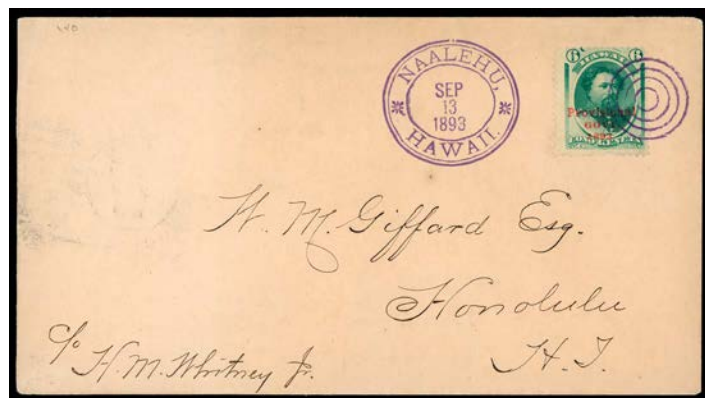 NAALEHU,
SEP
13
1893
HAWAII.
Provisional
GOVT.
1893
W. M. Giffard Esq.
Honolulu
H. I.
c/o H. M. Whitney Jr.